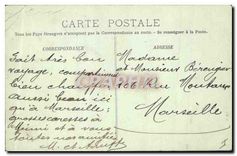 CARTE POSTALE
Tous les Pays étrangers n'acceptent pas la Correspondance au recto. - Se renseigner à la Poste.
CORRESPONDANCE
ADRESSE
Fait très bon
voyage, compartiment
bien chauffé
aussi beau ici
qu'à Marseille
caresses à
Mimi et à vous
toutes nos amitiés
M. et
Madame
et Monsieur Bérenger
206 Rue
Marseille